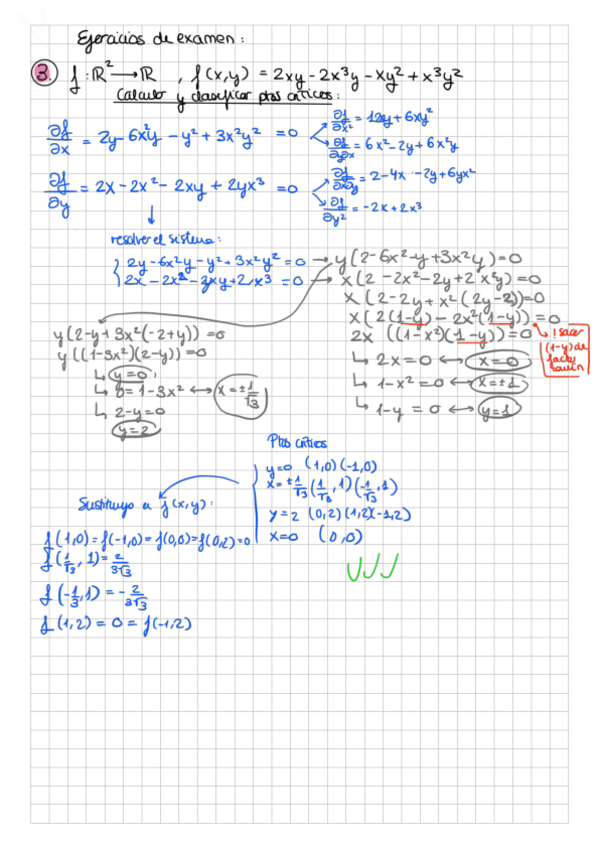 Ejercicios de examen:
3. f: ℝ² → ℝ , f(x,y) = 2xy - 2x³y - xy² + x³y²
Calcular y clasificar ptos críticos:
∂f/∂x = 2y - 6x²y - y² + 3x²y² = 0
∂f/∂x² = 12y + 6xy²
∂f/∂y∂x = 6x² - 2y + 6x²y
∂f/∂y = 2x - 2x² - 2xy + 2yx³ = 0
∂f/∂x∂y = 2 - 4x - 2y + 6yx²
∂f/∂y² = -2x + 2x³
resolver el sistema:
2y - 6x²y - y² + 3x²y² = 0 → y(2 - 6x² - y + 3x²y) = 0
2x - 2x² - 2xy + 2yx³ = 0 → x(2 - 2x² - 2y + 2x²y) = 0
x(2 - 2y + x²(2y - 2)) = 0
x(2(1-y) - 2x²(1-y)) = 0
2x ((1-x²)(1-y)) = 0
! sacar
(1-y) de
factor
común
↳ 2x = 0 ↔ x = 0
↳ 1 - x² = 0 ↔ x = ±1
↳ 1 - y = 0 ↔ y = 1
y(2 - y + 3x²(-2+y)) = 0
y((1-3x²)(2-y)) = 0
↳ y = 0
↳ 0 = 1 - 3x² ↔ x = ± 1/√3
↳ 2 - y = 0
y = 2
Ptos críticos
y=0 (1,0) (-1,0)
x = ± 1/√3 (1/√3, 1) (-1/√3, 1)
y = 2 (0,2) (1,2) (-1,2)
x=0 (0,0)
Sustituyo a f(x,y):
f(1,0) = f(-1,0) = f(0,0) = f(0,2) = 0
f(1/√3, 1) = 2/3√3
f(-1/3, 1) = - 2/3√3
f(1,2) = 0 = f(-1,2)